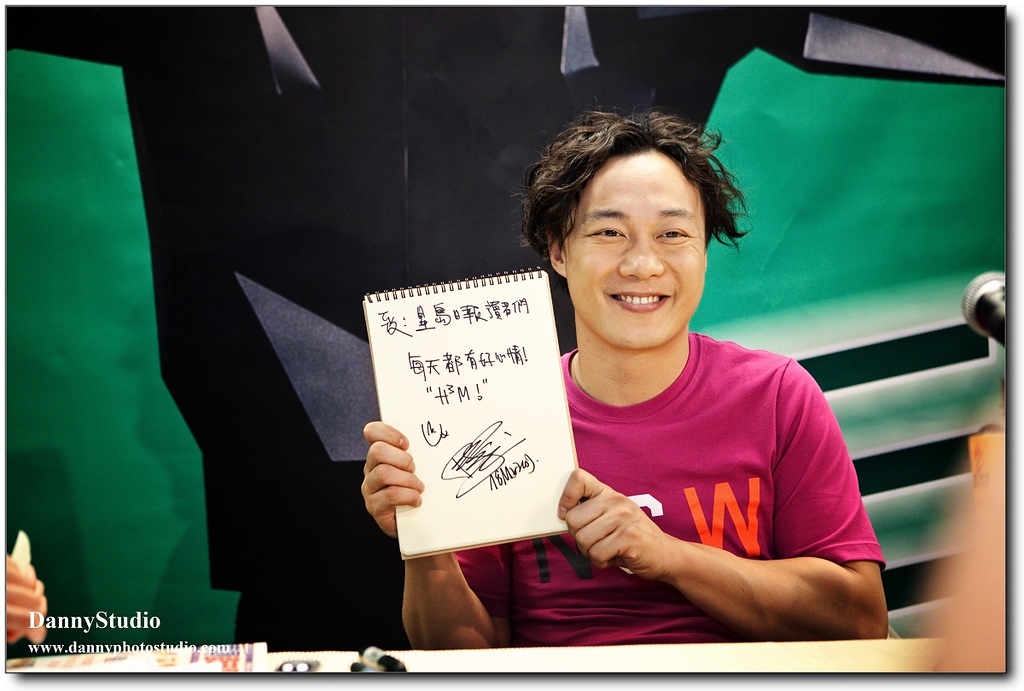 致：星島日報讀者們
每天都有好心情!
"H³M!"
NSW
DannyStudio
www.dannyphotostudio.com